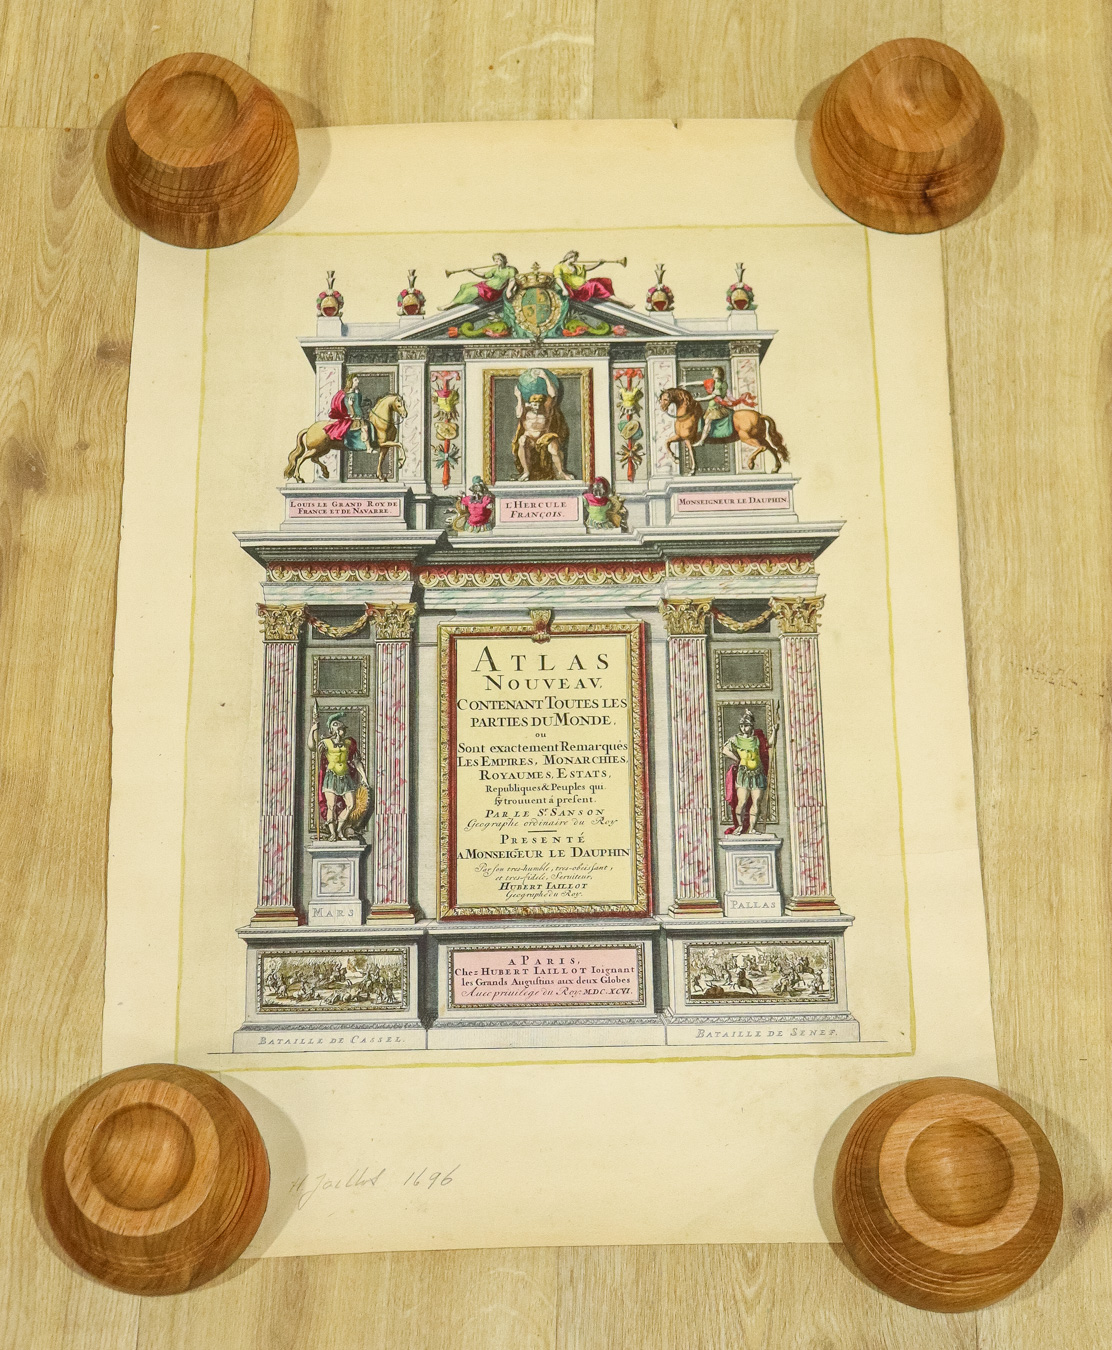 LOUIS LE GRAND ROY DE
FRANCE ET DE NAVARRE
L'HERCULE
FRANÇOIS.
MONSEIGNEUR LE DAUPHIN
ATLAS
NOUVEAV.
CONTENANT TOUTES LES
PARTIES DU MONDE,
ou
Sont exactement Remarqués
LES EMPIRES, MONARCHIES,
ROYAUMES, ESTATS,
Republiques & Peuples qui
sy trouuent á present.
PAR LE Sr. SANSON
Geographe ordinaire du Roy
PRESENTÉ
A MONSEIGEUR LE DAUPHIN
Par son tres-humble, tres-obeissant,
et tres-fidele, Seruiteur,
HUBERT IAILLOT
Geographe du Roy.
MARS
PALLAS
A PARIS,
Chez HUBERT IAILLOT Ioignant
les Grands Augustins aux deux Globes
Auec priuilege du Roy. MDC.XCVI.
BATAILLE DE CASSEL.
BATAILLE DE SENEF.
H. Jaillot 1696